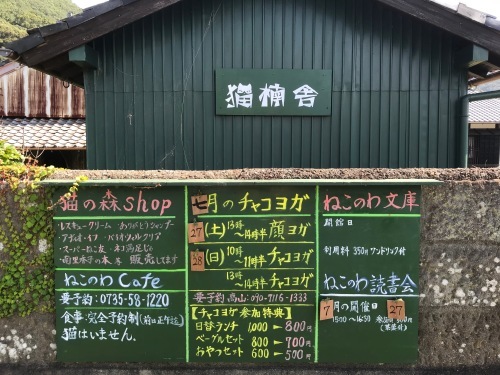 猫楠舎
猫の森shop
レスキュークリーム・ありがとうシャンプー
スーパーねこ友・ネコ満足じゃ
南里求子の本等 販売してます
ねこのわCafe
要予約:0735-58-1220
食事:完全予約制(前日正午迄)
猫はいません。
七月のチャコヨガ
27(土) 13時〜14時半 顔ヨガ
28(日) 10時〜11時半 チャコヨガ
13時〜14時半 チャコヨガ
要予約 高山:090-7116-1333
【チャコヨガ参加特典】
日替ランチ 1,000→800円
ベーグルセット 800→700円
おやつセット 600→500円
ねこのわ文庫
開館日
利用料 350円 ワンドリンク付
ねこのわ読書会
7月の開催日 27
15:00〜16:30 参加費500円
(茶菓付)